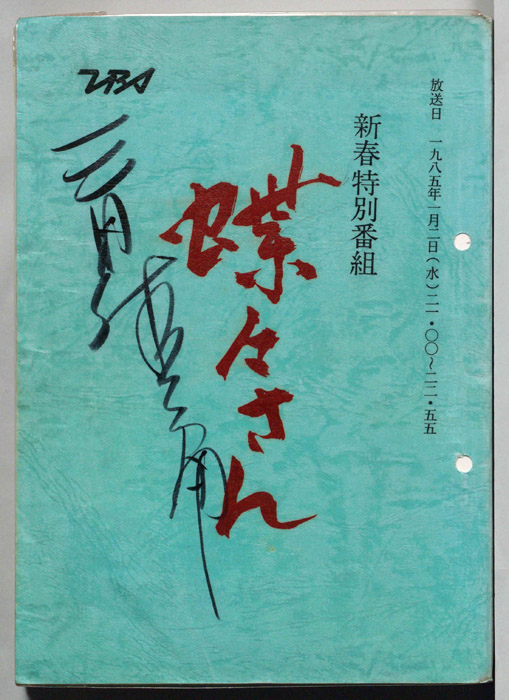 放送日 一九八五年一月二日(水)二一・〇〇~二二・五五
新春特別番組
蝶々さん
TBS